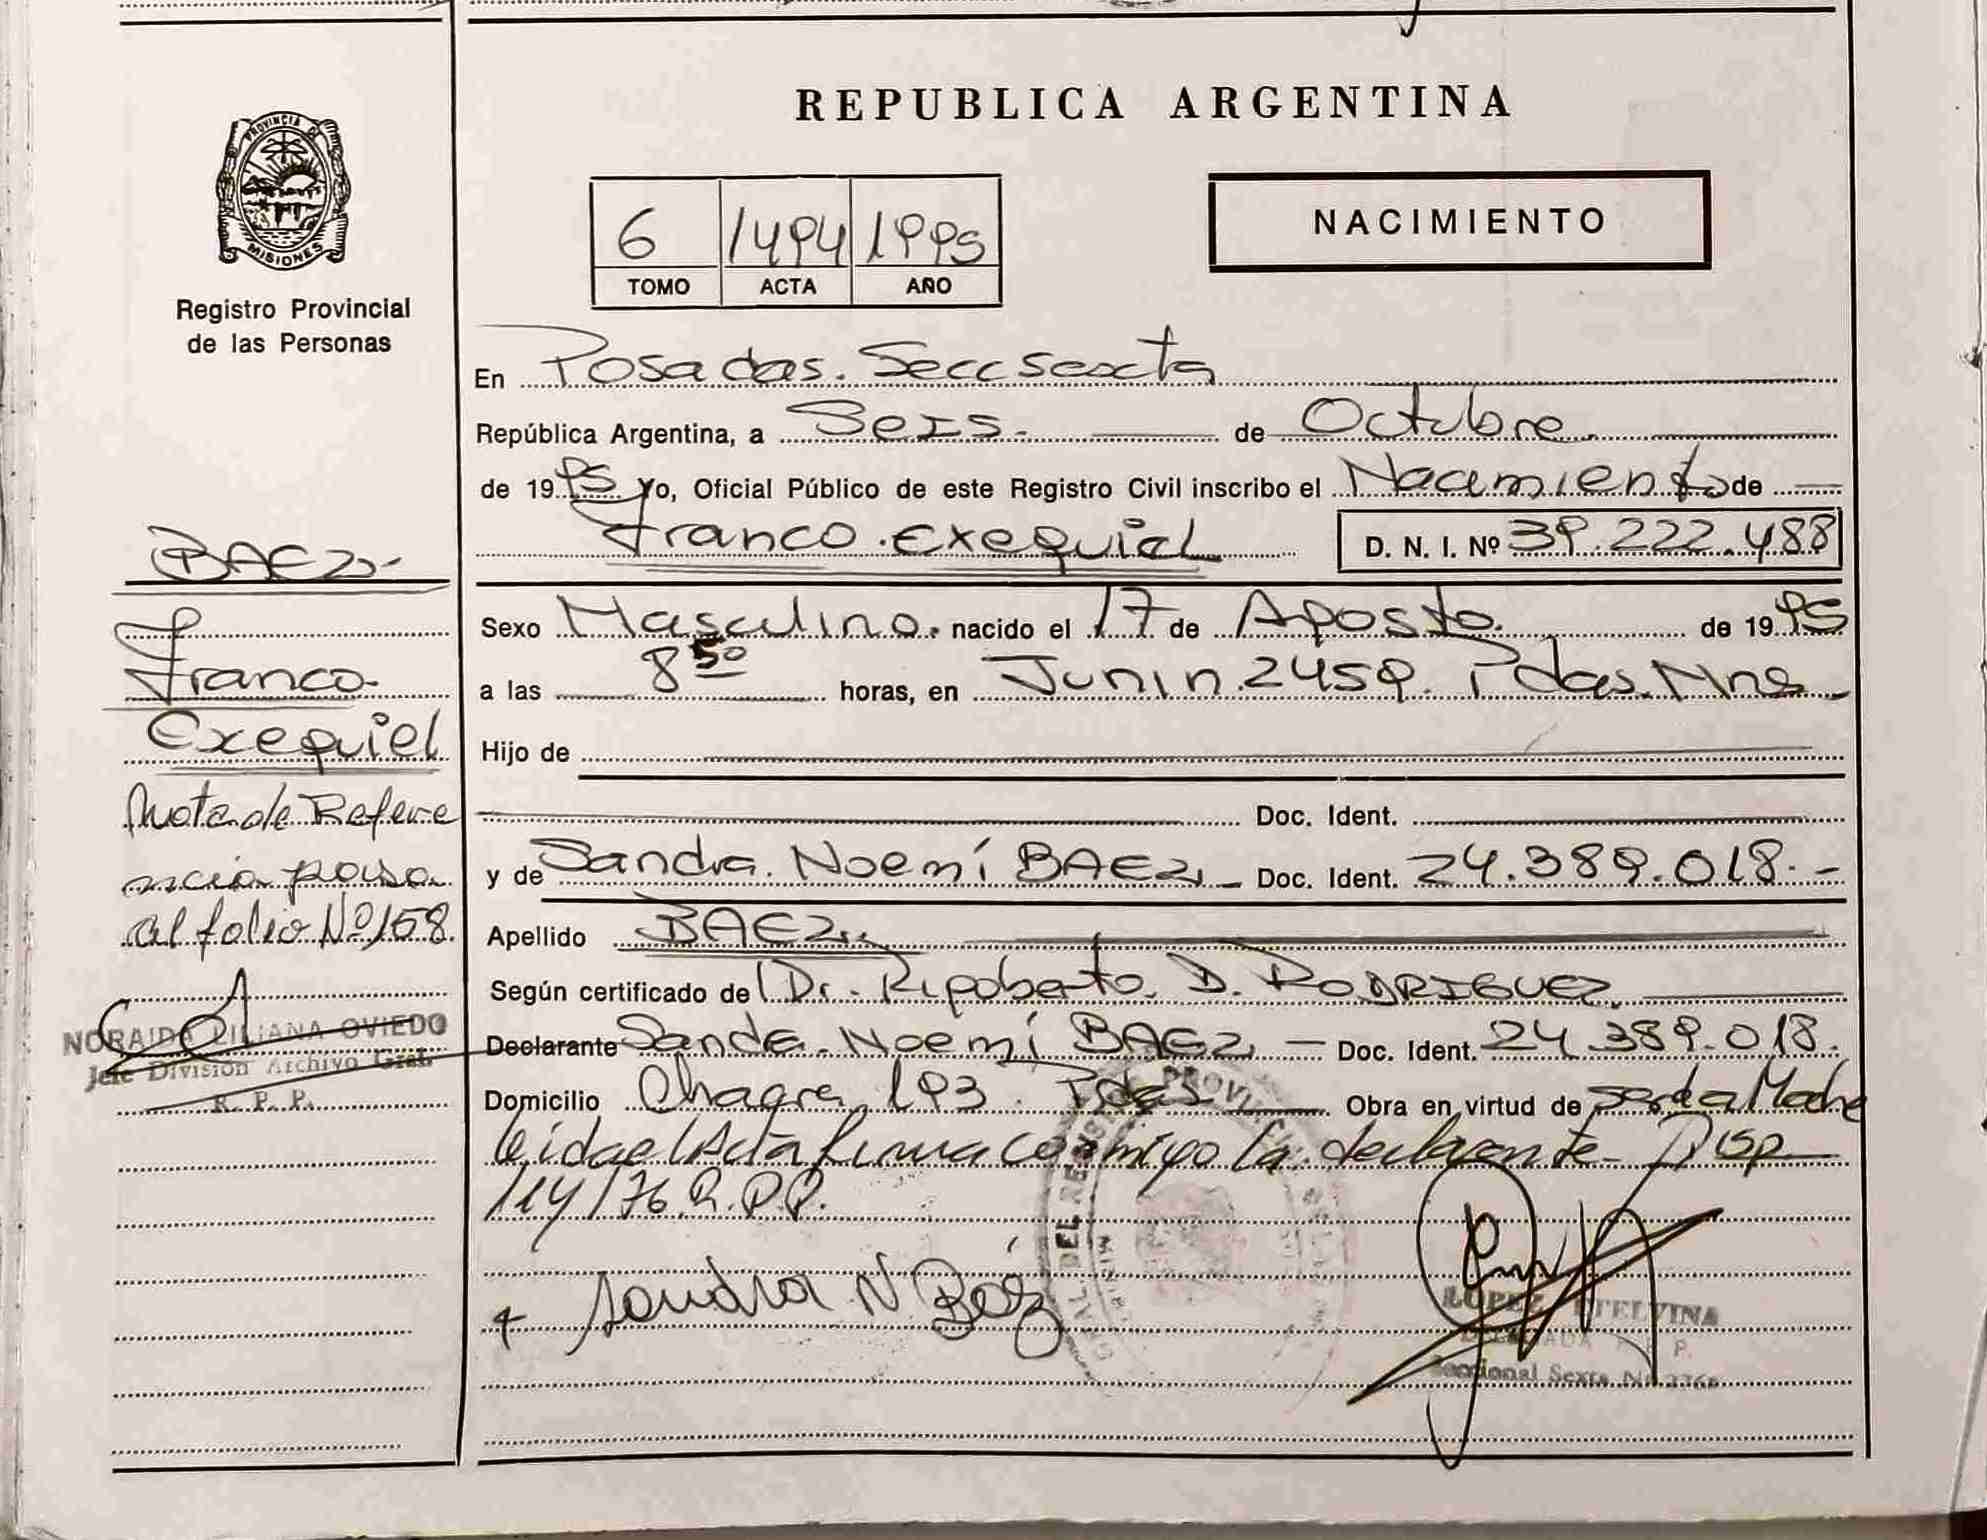 REPUBLICA ARGENTINA
PROVINCIA DE
MISIONES
Registro Provincial
de las Personas
6 1494 1995
TOMO ACTA AÑO
NACIMIENTO
En Posadas. Secc sexta
República Argentina, a Seis. de Octubre
de 1995 yo, Oficial Público de este Registro Civil inscribo el Nacimiento de
Franco Exequiel D. N. I. Nº 39.222.488
Sexo Masculino. nacido el 17 de Agosto. de 1995
a las 8 50 horas, en Junin 2459. Pdas. Mns
Hijo de
Doc. Ident.
y de Sandra Noemí BAEZ Doc. Ident. 24.389.018.-
Apellido BAEZ
Según certificado de Dr. Rigoberto D. RODRIGUEZ.
Declarante Sandra Noemí BAEZ — Doc. Ident. 24.389.018.
Domicilio Chagre 193 Pdas Obra en virtud de ser la Madre
leida el Acta firma conmigo la declarante Disp
114/76 R.P.P.
Sandra N Baéz
LOPEZ ETELVINA
DELEGADA R. P. P.
Seccional Sexta
BAEZ-
Franco
Exequiel
Nota de Refere
ncia pasa
al folio Nº 158
NORAIDA LILIANA OVIEDO
Jefe División Archivo Gral.
R. P. P.